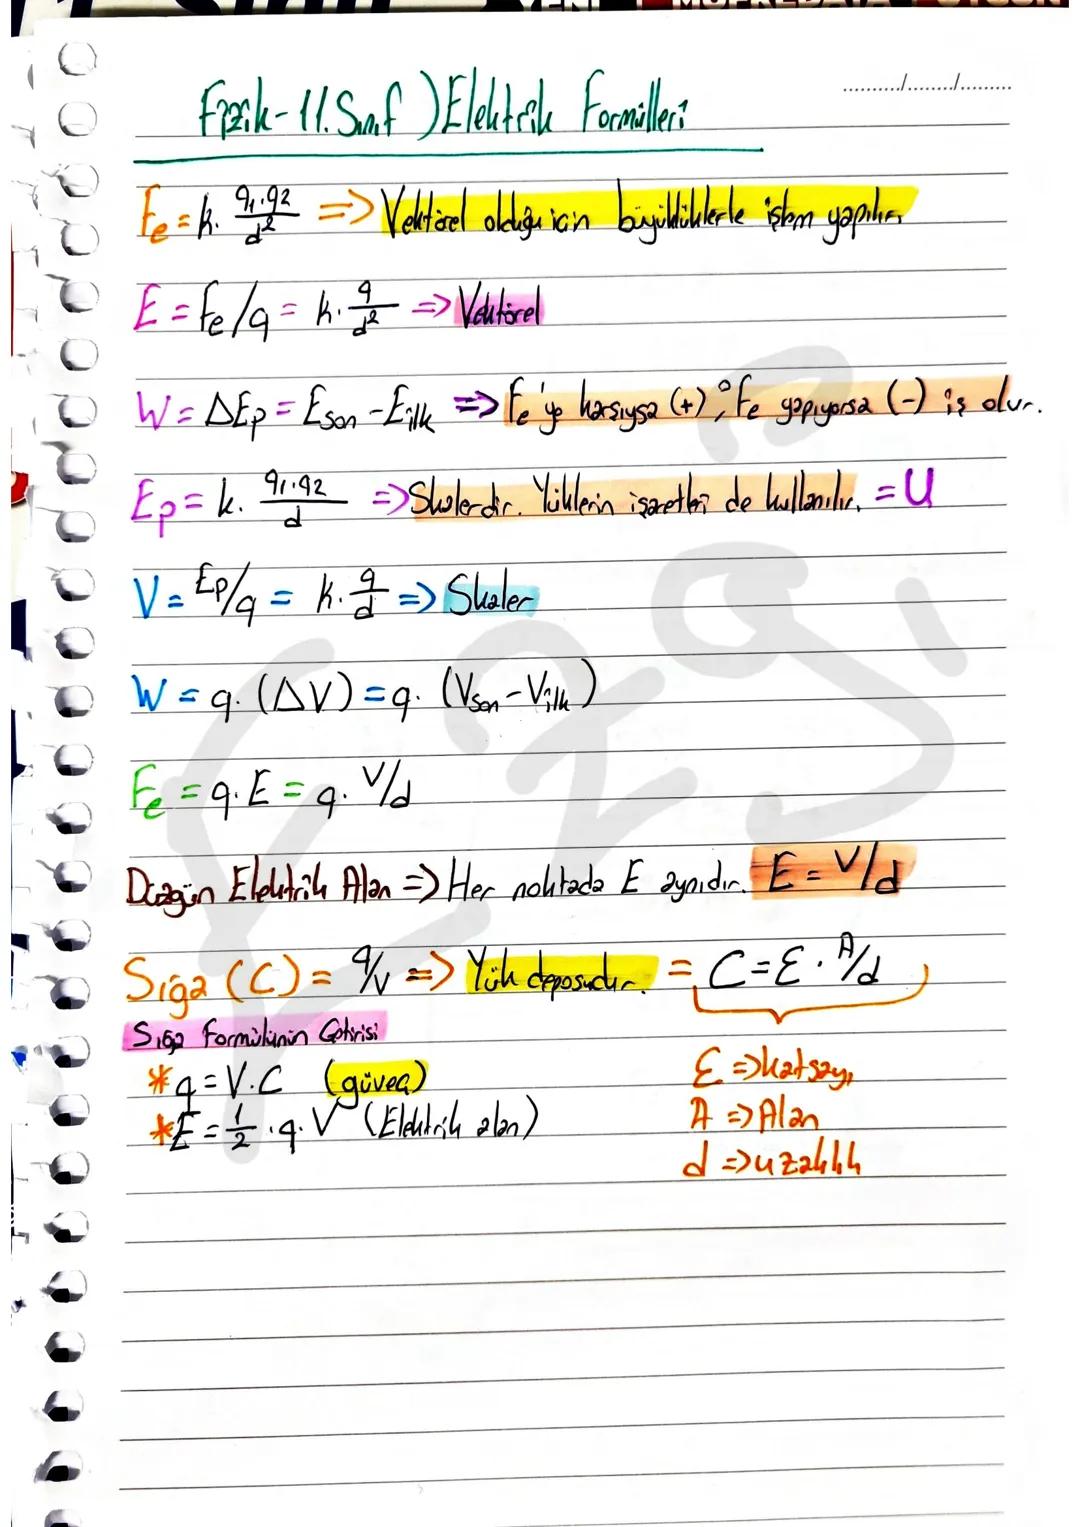 YENİ MÜFREDATA
Fizik-11.Sınıf )Elektrik Formülleri
........../........./.........
Fe = k. q1.q2/d² => Vektörel olduğu için büyüklüklerle işlem yapılır.
E = Fe/q = k. q/d² => Vektörel
W = ΔEp = Eson - Eilk => Fe'ye karşıysa (+), Fe yapıyorsa (-) iş olur.
Ep = k. q1.q2/d => Skalerdir. Yüklerin işaretleri de kullanılır. = U
V = Ep/q = k. q/d => Skaler
W = q. (ΔV) = q. (Vson - Vilk)
Fe = q.E = q. V/d
Düzgün Elektrik Alan => Her noktada E aynıdır. E = V/d
Sığa (C) = q/V => Yük deposudur. = C = Ɛ . A/d
Sığa Formülünün Getirisi
* q = V.C (güveç)
* E = 1/2 .q.V (Elektrik alan)
Ɛ => katsayı
A => Alan
d => uzaklık
Ezgi